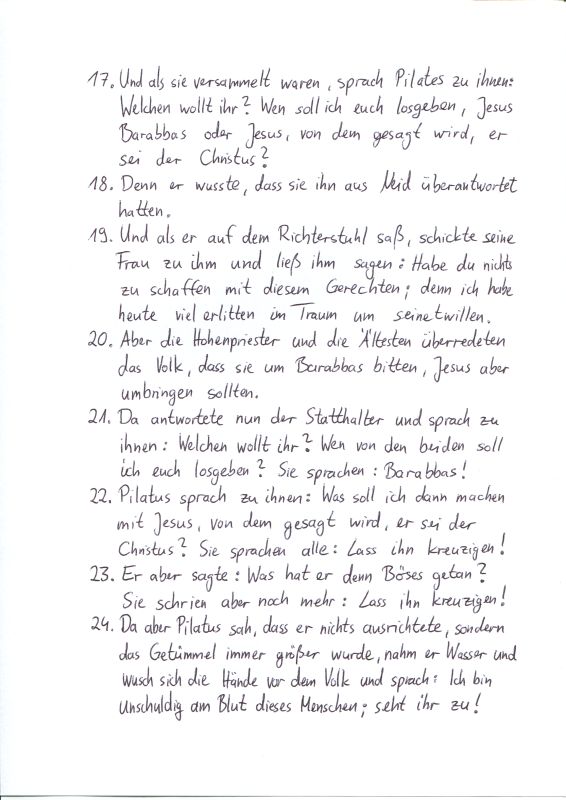 17. Und als sie versammelt waren, sprach Pilates zu ihnen:
Welchen wollt ihr? Wen soll ich euch losgeben, Jesus
Barabbas oder Jesus, von dem gesagt wird, er
sei der Christus?
18. Denn er wusste, dass sie ihn aus Neid überantwortet
hatten.
19. Und als er auf dem Richterstuhl saß, schickte seine
Frau zu ihm und ließ ihm sagen: Habe du nichts
zu schaffen mit diesem Gerechten; denn ich habe
heute viel erlitten im Traum um seinetwillen.
20. Aber die Hohenpriester und die Ältesten überredeten
das Volk, dass sie um Barabbas bitten, Jesus aber
umbringen sollten.
21. Da antwortete nun der Statthalter und sprach zu
ihnen: Welchen wollt ihr? Wen von den beiden soll
ich euch losgeben? Sie sprachen: Barabbas!
22. Pilatus sprach zu ihnen: Was soll ich dann machen
mit Jesus, von dem gesagt wird, er sei der
Christus? Sie sprachen alle: Lass ihn kreuzigen!
23. Er aber sagte: Was hat er denn Böses getan?
Sie schrien aber noch mehr: Lass ihn kreuzigen!
24. Da aber Pilatus sah, dass er nichts ausrichtete, sondern
das Getümmel immer größer wurde, nahm er Wasser und
wusch sich die Hände vor dem Volk und sprach: Ich bin
unschuldig am Blut dieses Menschen; seht ihr zu!